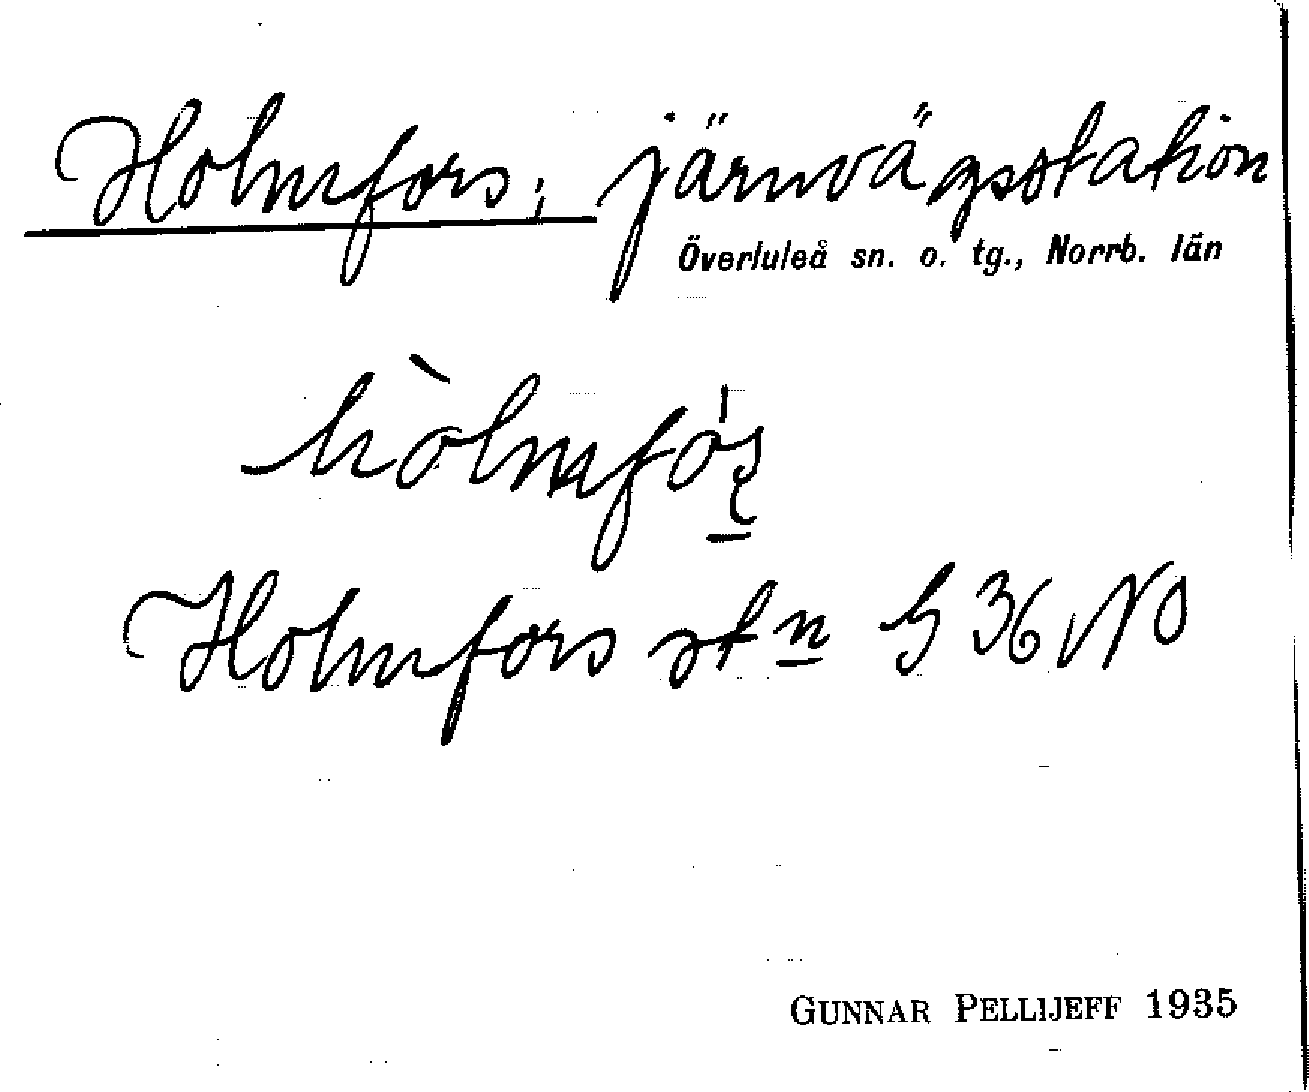 Holmfors; järnvägsstation
Överluleå sn. o. tg., Norrb. län
hòlmfó̍ş
Holmfors stn G 36 NO
GUNNAR PELLIJEFF 1935